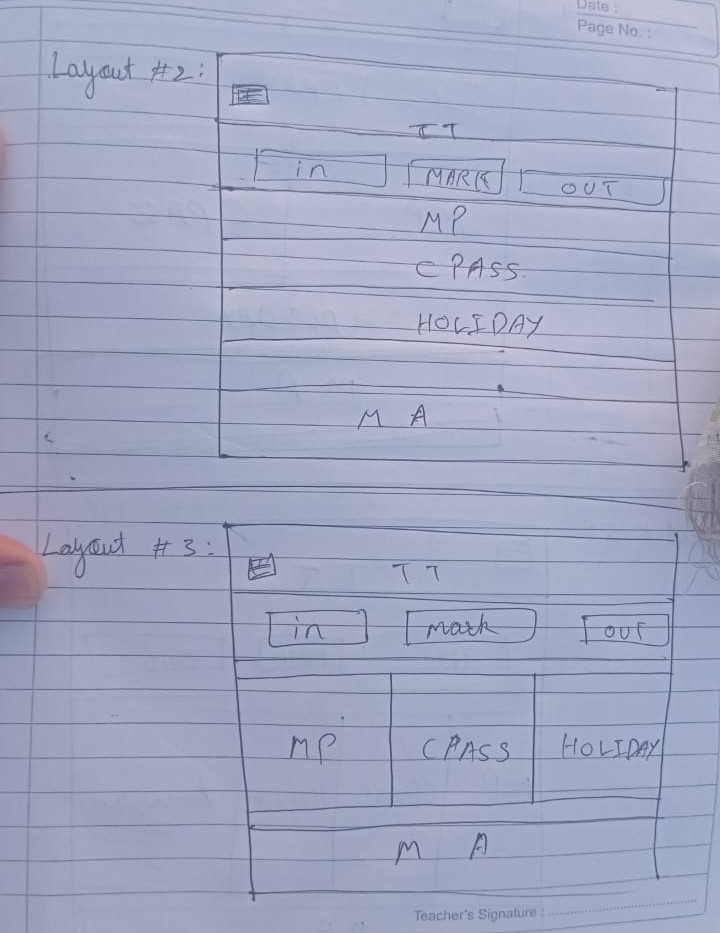 Date :
Page No. :
Layout #2:
TT
in MARK OUT
MP
CPASS
HOLIDAY
M A
Layout # 3:
TT
in Mark OUT
MP CPASS HOLIDAY
M A
Teacher's Signature :